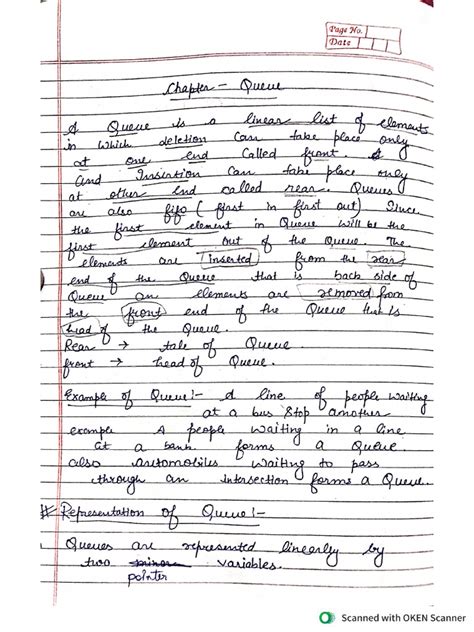 Page No.
Date
Chapter - Queue
A Queue is a linear list of elements
in which deletion can take place only
at one end called front.
and Insertion can take place only
at other end called rear. Queues
are also fifo ( first in first out) Since
the first element in Queue will be the
first element out of the Queue. The
elements are Inserted from the rear
end of the Queue that is back side of
Queue an elements are removed from
the front end of the Queue that is
head of the Queue.
Rear → tale of Queue
front → head of Queue.
Example of Queue:- A line of people waiting
at a bus stop another
example A people waiting in a line
at a bank forms a Queue.
also automobiles waiting to pass
through an intersection forms a Queue.
# Representation of Queue:-
Queues are represented linearly by
two variables.
pointer
Scanned with OKEN Scanner